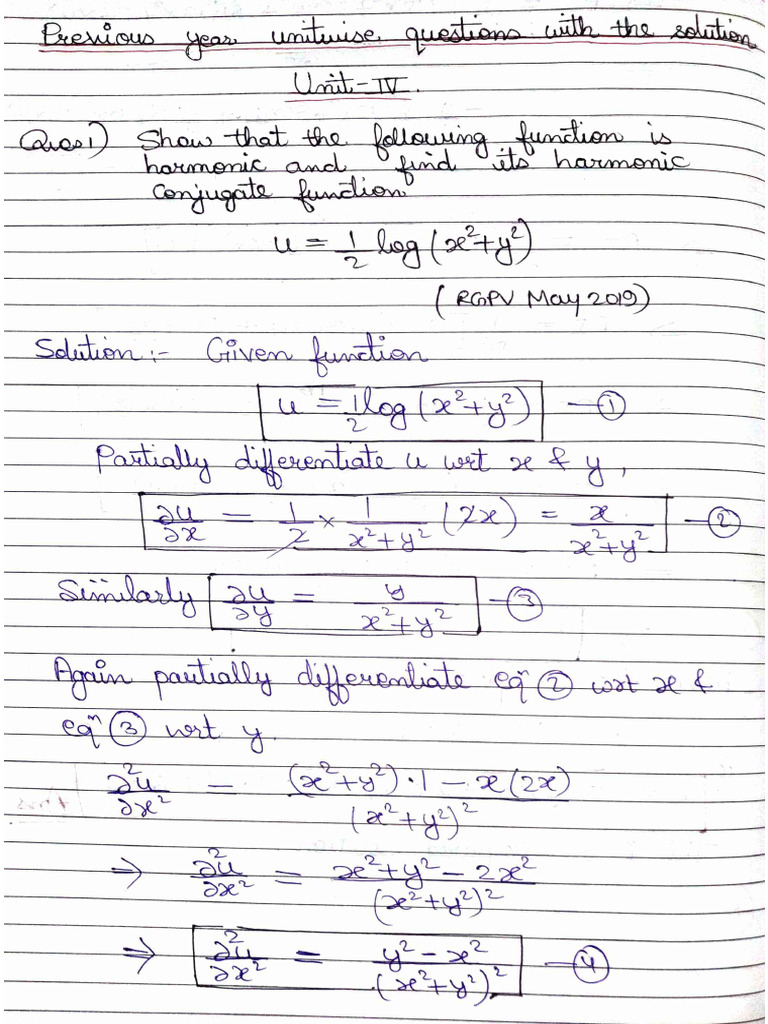 Previous year unitwise questions with the solution
Unit-IV.
Ques1) Show that the following function is
harmonic and find its harmonic
conjugate function
u = 1/2 log(x²+y²)
(RGPV May 2019)
Solution:- Given function
u = 1/2 log(x²+y²) —①
Partially differentiate u wrt x & y,
∂u/∂x = 1/2 × 1/(x²+y²) (2x) = x/(x²+y²) —②
Similarly ∂u/∂y = y/(x²+y²) —③
Again partially differentiate eqⁿ ② wrt x &
eqⁿ ③ wrt y.
∂²u/∂x² = ((x²+y²)·1 – x(2x))/(x²+y²)²
⇒ ∂²u/∂x² = (x²+y²–2x²)/(x²+y²)²
⇒ ∂²u/∂x² = (y²–x²)/(x²+y²)² —④